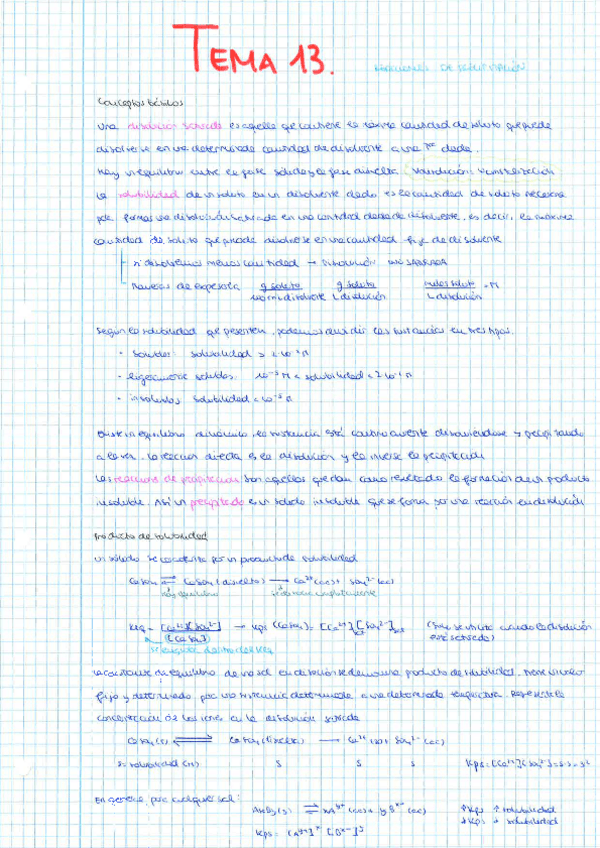 TEMA 13. REACCIONES DE PRECIPITACIÓN
Conceptos básicos
Una disolución saturada es aquella que contiene la máxima cantidad de soluto que puede
disolverse en una determinada cantidad de disolvente a una Tª dada.
Hay un equilibrio entre la fase sólida y la fase disuelta.
La solubilidad de un soluto en un disolvente dado es la cantidad de soluto necesaria
para formar una disolución saturada en una cantidad dada de disolvente, es decir, la máxima
cantidad de soluto que puede disolverse en una cantidad fija de disolvente
Si disolvemos menos cantidad → Disolución
Maneras de expresarla g soluto / disolvente g soluto / L disolución moles soluto / L disolución = M
Según la solubilidad que presenten, podemos dividir las sustancias en tres tipos.
· Solubles: solubilidad
· Ligeramente solubles: solubilidad
· insolubles solubilidad
Existe un equilibrio dinámico, la sustancia está continuamente disolviéndose y precipitando
a la vez. La reacción directa es la disolución y la inversa la precipitación
Las reacciones de precipitación son aquellas que dan como resultado la formación de un producto
insoluble. Así un precipitado es un sólido insoluble que se forma por una reacción en disolución
Producto de solubilidad
Un sólido se caracteriza por un producto de solubilidad
CaSO₄ ⇌ CaSO₄ (disuelto) → Ca²⁺ (ac) + SO₄²⁻ (ac)
equilibrio completamente
Keq = [Ca²⁺][SO₄²⁻] / [CaSO₄] → Kps (CaSO₄) = [Ca²⁺][SO₄²⁻] (Sólo se cuando la disolución
está saturada)
dentro de Keq
La constante de equilibrio de una sal en disolución se denomina producto de solubilidad. Tiene un valor
fijo y determinado para una sustancia determinada a una determinada temperatura. Representa la
concentración de los iones en la disolución saturada
CaSO₄ (s) ⇌ CaSO₄ (disuelto) → Ca²⁺ (ac) + SO₄²⁻ (ac)
s = solubilidad (M) s s s Kps = [Ca²⁺][SO₄²⁻] = s·s = s²
En general, para cualquier sal:
AxBy (s) ⇌ xA (ac) + yB (ac) ↑Kps ↑ solubilidad
Kps = ↓Kps ↓ solubilidad